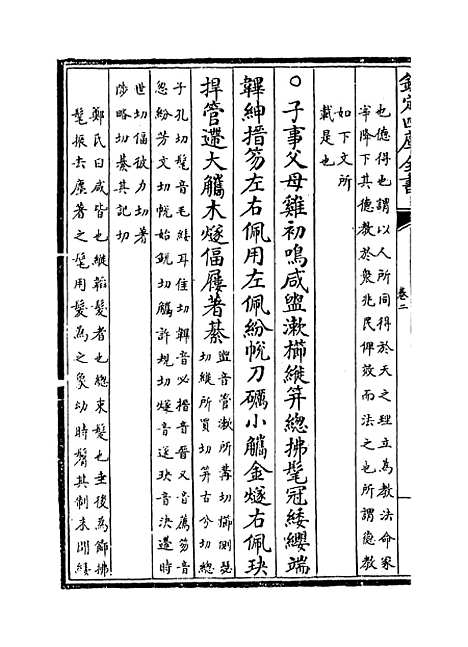 欽定四庫全書
卷二
也德得也謂以人所同得於天之理立為教法命冢
宰降下其德教於衆兆民俾效而法之也所謂德教
如下文所
載是也
○子事父母雞初鳴咸盥漱櫛縰笄總拂髦冠緌纓端
韠紳搢笏左右佩用左佩紛帨刀礪小觿金燧右佩玦
捍管遰大觿木燧偪屨著綦
盥音管漱所冓切櫛側瑟
切縱所買切笄古兮切總
子孔切髦音毛緌耳佳切韠音必搢音晉又音薦笏音
忽紛芳文切帨始銳切觿許規切燧音遂玦音決遰時
世切偪彼力切著
陟略切綦其記切
鄭氏曰咸皆也縱韜髮者也總束髮也垂後為飾拂
髦振去塵著之髦用髮為之象幼時鬌其制未聞緌